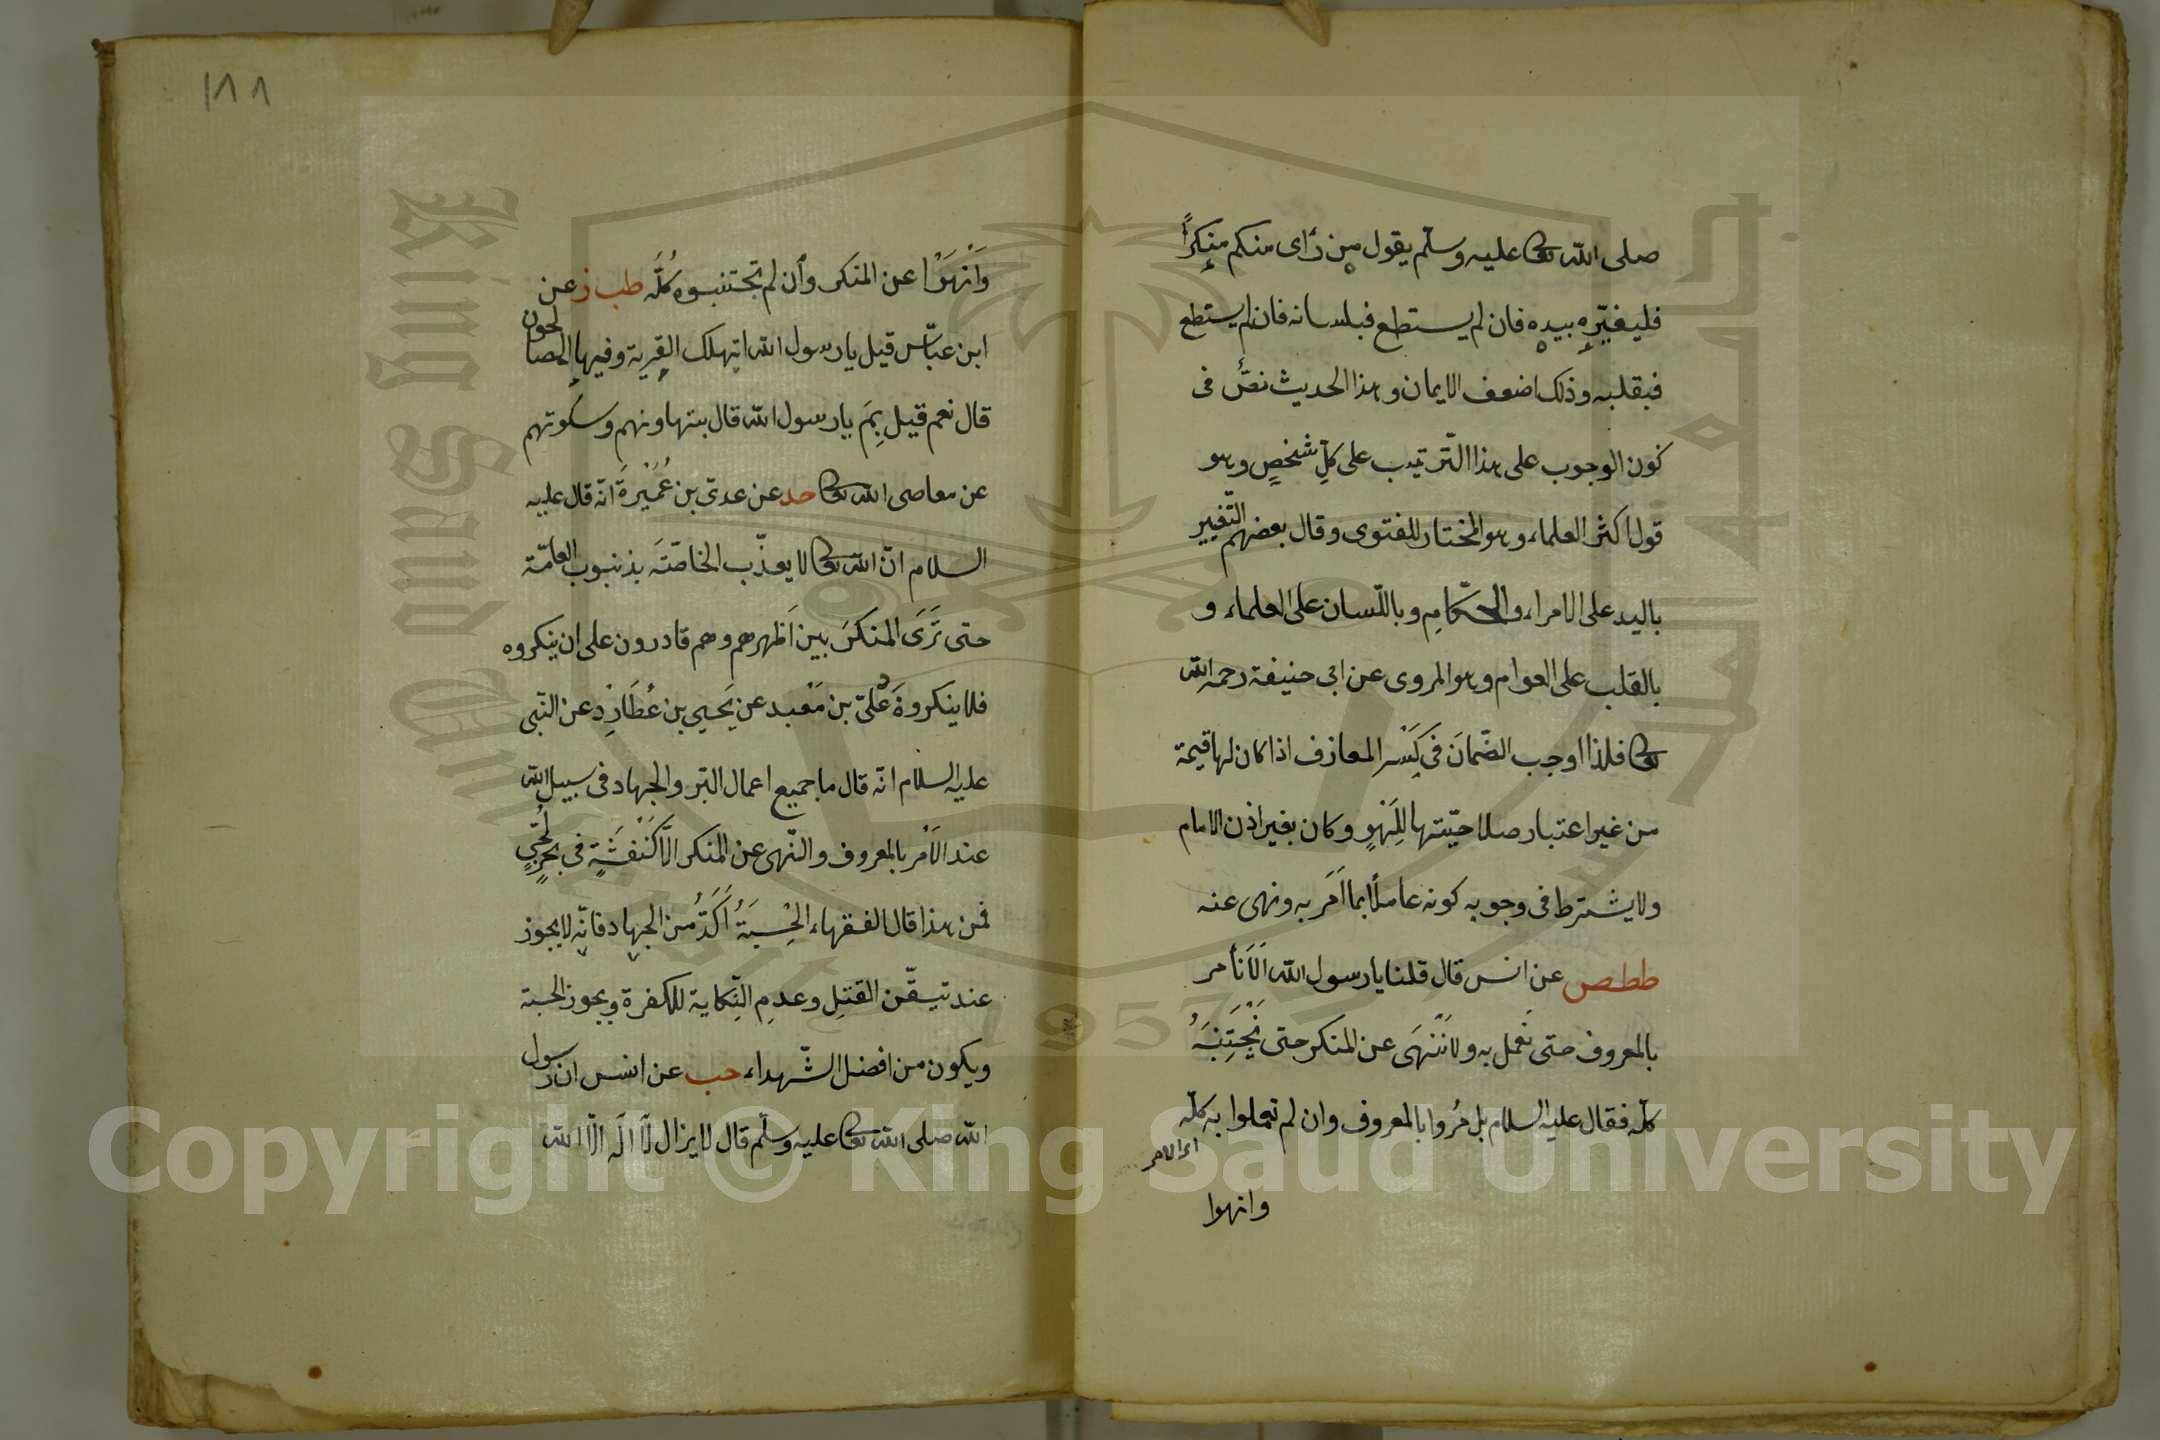 صلى الله تعا عليه وسلّم يقول من رأى منكم منكراً
فليغيّره بيده فان لم يستطع فبلسانه فان لم يستطع
فبقلبه وذلك اضعف الايمان وهذا الحديث نصٌّ فى
كون الوجوب على هذا التّرتيب على كلِّ شخصٍ وهو
قول اكثر العلماء وهو المختار للفتوى وقال بعضهم التّغيير
باليد على الامراء والحكّامِ وباللّسان على العلماء و
بالقلب على العوام وهو المروى عن ابى حنيفة رحمه الله
تعا فلذا اوجب الضّمانَ فى كَسْرِ المعازف اذا كان لها قيمة
من غير اعتبار صلاحيّتها لِلَهْوٍ وكان بغير اذن الامام
ولا يشترط فى وجوبه كونه عاملًا بما اَمَرَ به ونهى عنه
ططص عن انس قال قلنا يا رسول الله اَلَا نأمر
بالمعروف حتى نَعْمل به ولا نَنْهَى عن المنكر حتى نَجْتَنِبَهُ
كلّه فقال عليه السلام بل مُروا بالمعروف وان لم تعملوا به كلّه
اى الامر
وانهوا
١٨٨
وَانْهَوْا عن المنكر وأن لم تجتنبوه كُلَّه طب ز عن
ابن عبّاس قيل يا رسول الله اتهلك القرية وفيها الصالحون
قال نعم قيل بِمَ يا رسول الله قال بتهاونهم وسكوتهم
عن معاصى الله تعا حد عن عدىّ بن عُمَيْرةَ انّه قال عليه
السلام انّ الله تعا لا يعذّب الخاصّتَه بذنبوب العامّة
حتى تَرَى المنكرَ بين اَظهرهم وهم قادرون على ان ينكروه
فلا ينكروهَ علىّ بن مَعْبد عن يَحيى بن عُطَارِدٍ عن النّبى
عليه السلام انّه قال ما جميع اعمال البّر والجهاد فى سبيل الله
عند الاَمْر بالمعروف والنّهى عن المنكر الَّا كَنَفْثَةٍ فى بحرٍ لُجّىٍ
فمن هذا قال الفقهاء الحِسْبَةُ اَكَدُّ من الجهاد فانّه لا يجوز
عند تيقّن القتلِ وعدمِ النِّكاية للكفرة ويجوز الحسبة
ويكون من افضل الشّهداء حب عن انس ان رسول
الله صلى الله تعا عليه وسلّم قال لا يزال لَا اله الّا الله
Copyright © King Saud University
King Saud University
1957